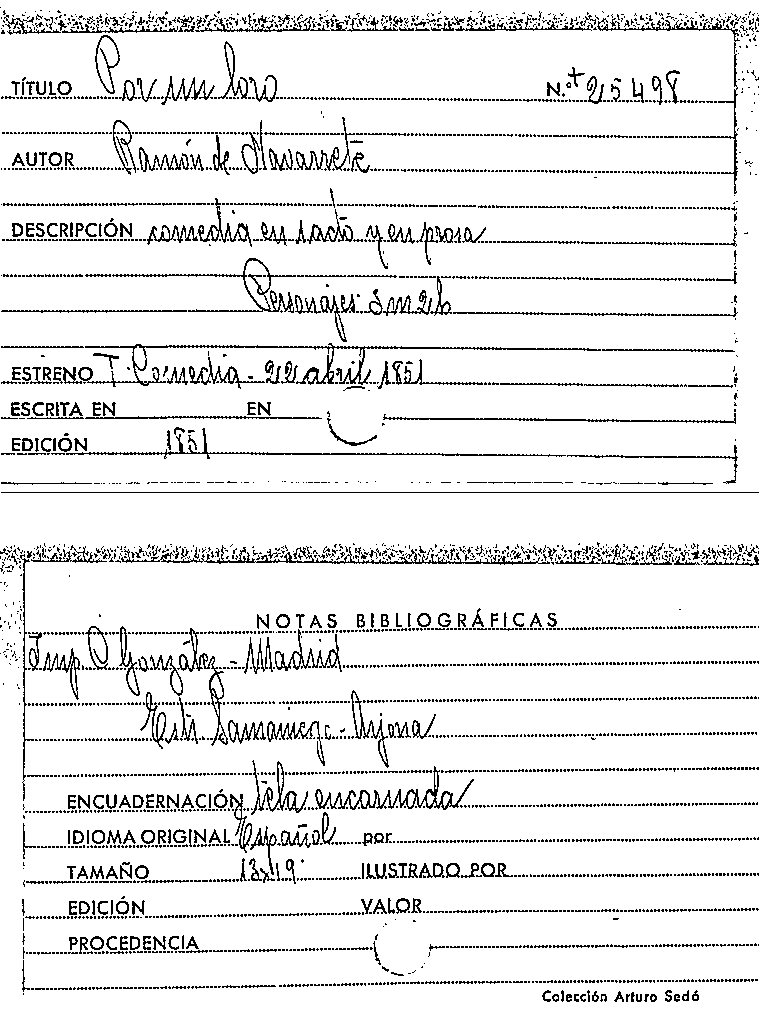 TÍTULO Por un loro N.º+ 25498
AUTOR Ramón de Navarrete
DESCRIPCIÓN comedia en 1 acto y en prosa
Personajes: 3 m 2 h
ESTRENO T. Comedia - 22 abril 1851
ESCRITA EN EN
EDICIÓN 1851
NOTAS BIBLIOGRÁFICAS
Imp C González - Madrid
Estr. Samaniego - Arjona
ENCUADERNACIÓN tela encarnada
IDIOMA ORIGINAL Español por
TAMAÑO 13x19 ILUSTRADO POR
EDICIÓN VALOR
PROCEDENCIA
Colección Arturo Sedó